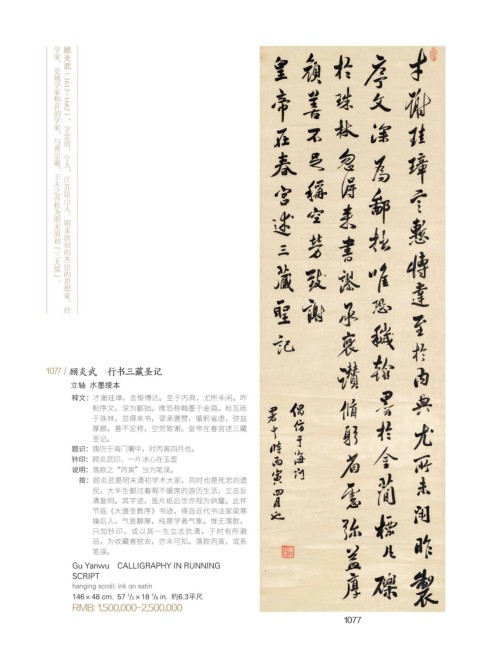 顾炎武（1613-1682），字忠清、宁人。江苏昆山人。明末清初的杰出的思想家、经
学家、史地学家和音韵学家，与黄宗羲、王夫之并称为明末清初“三大儒”。
才謝珪璋言慙博達至於内典尤所未閑昨製
序文深為鄙拙唯恐穢翰墨於金簡標瓦礫
於珠林忽得来書謬承褒讃循躬省慮弥益厚
顔善不足稱空勞致謝
皇帝在春宫述三藏聖記
偶仿于海门
署中時丙寅四月也
1077 / 顾炎武　行书三藏圣记
立轴 水墨绫本
释文：才谢珪璋。言惭博达。至于内典，尤所未闲。昨
制序文。深为鄙拙。唯恐秽翰墨于金简。标瓦砾
于珠林。忽得来书。谬承褒赞。循躬省虑。弥益
厚颜。善不足称。空劳致谢。皇帝在春宫述三藏
圣记。
题识：偶仿于海门署中，时丙寅四月也。
钤印：顾炎武印、一片冰心在玉壶
说明：落款之“丙寅”当为笔误。
按：顾炎武是明末清初学术大家，同时也是死忠的遗
民，大半生都过着暇不暖席的游历生活，立志反
清复明。其字迹，虽片纸后世亦视为拱璧。此件
节临《大唐圣教序》书迹，得自近代书法家梁寒
操后人，气息醇厚，纯是学者气象。惟无落款，
只加钤印。或以其一生立志抗清，于时有所避
忌，为收藏者挖去，亦未可知。落款丙寅，或系
笔误。
Gu Yanwu CALLIGRAPHY IN RUNNING
SCRIPT
hanging scroll; ink on satin
146×48 cm. 57 1/2×18 7/8 in. 约6.3平尺
RMB: 1,500,000-2,500,000
1077